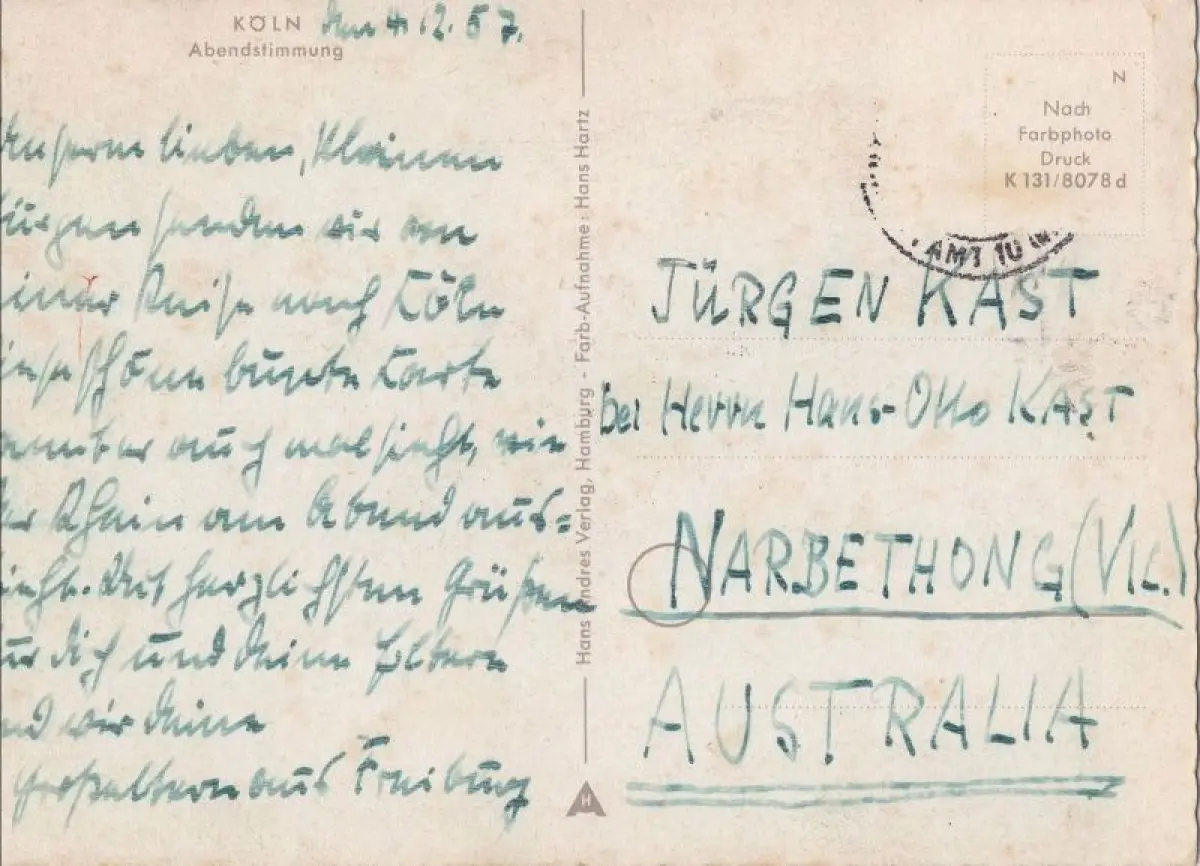 KÖLN
Abendstimmung
den 4.12.57.
Unserm lieben, kleinen
Jürgen senden wir von
einer Reise nach Köln
diese schöne bunte Karte
damit er auch mal sieht, wie
der Rhein am Abend aus=
sieht. Mit herzlichsten Grüßen
für dich und deine Eltern
sind wir deine
Großeltern aus Freiburg
Hans Andres Verlag, Hamburg - Farb-Aufnahme: Hans Hartz
H
N
Nach
Farbphoto
Druck
K 131/8078 d
AMT 10
JÜRGEN KAST
bei Herrn Hans-Otto KAST
NARBETHONG (VIC.)
AUSTRALIA